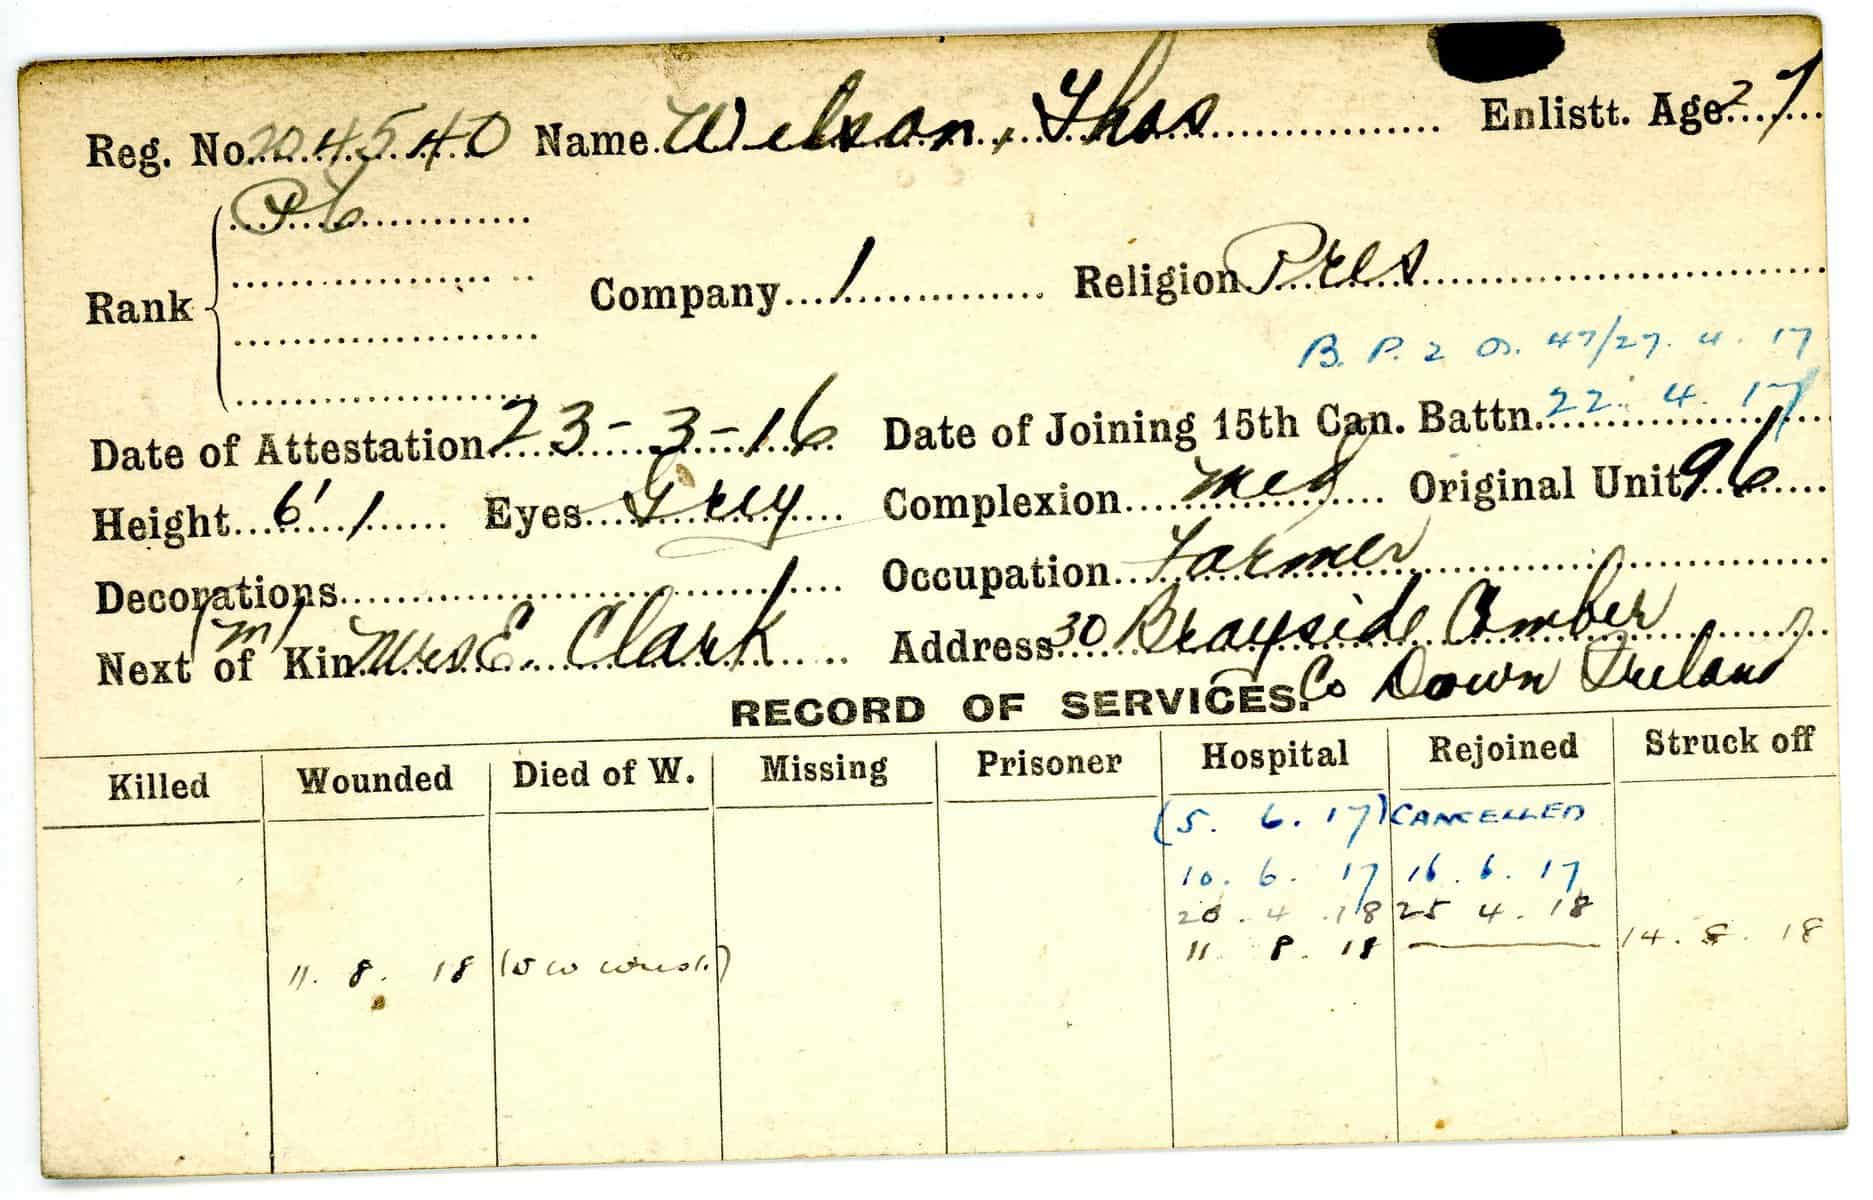 Reg. No. 204540 Name Wilson, Thos Enlistt. Age 27
Pte
Rank Company 1 Religion Pres
B. P. 2 O. 47/27. 4. 17
Date of Attestation 23-3-16 Date of Joining 15th Can. Battn. 22. 4. 17
Height 6' 1 Eyes Grey Complexion Med Original Unit 96
Decorations Occupation Farmer
(m)
Next of Kin Mrs E. Clark Address 30 Brayside Comber
RECORD OF SERVICES. Co Down Ireland
Killed Wounded Died of W. Missing Prisoner Hospital Rejoined Struck off
(5. 6. 17) CANCELLED
10. 6. 17 16. 6. 17
20. 4. 18 25 4. 18
11. 8. 18 (SW wrist.) 11 8. 18 — 14. 8. 18